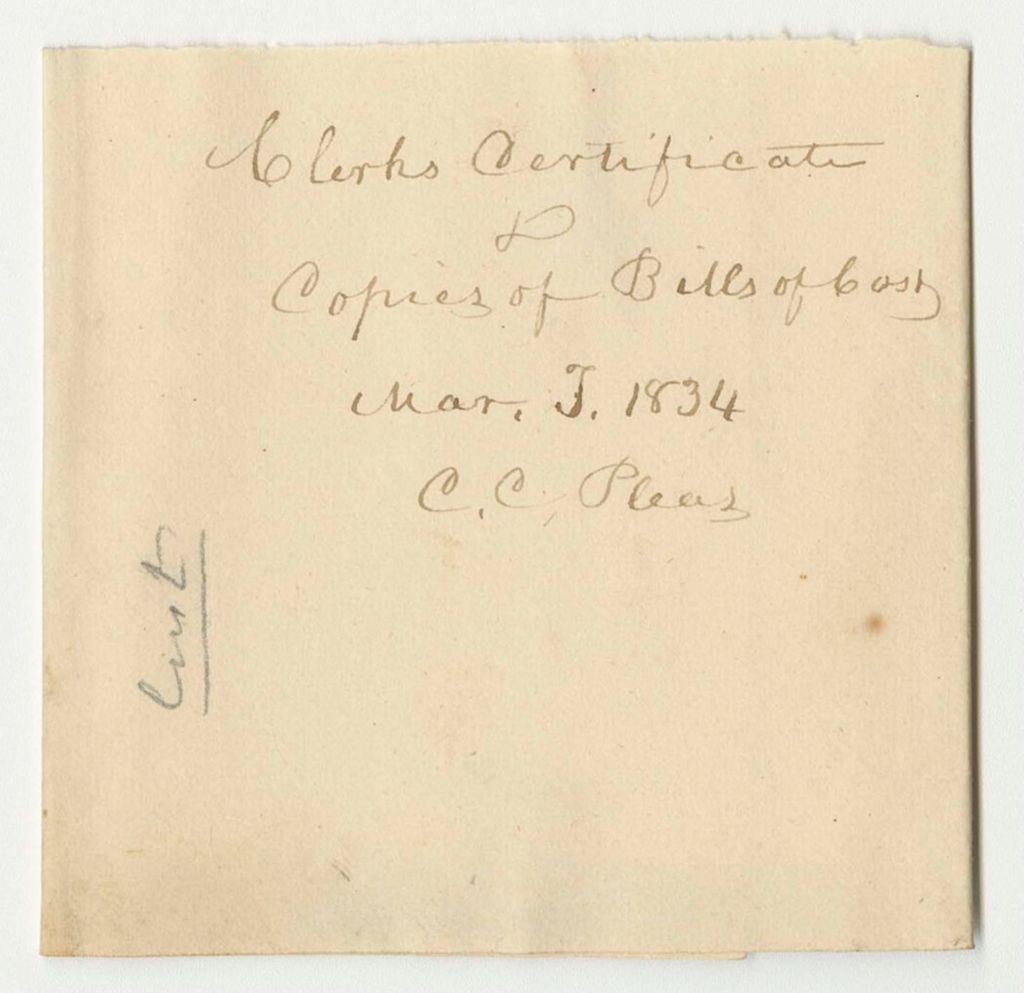 Clerks Certificate
&
Copies of Bills of Cost
Mar. T. 1834
C. C. Pleas